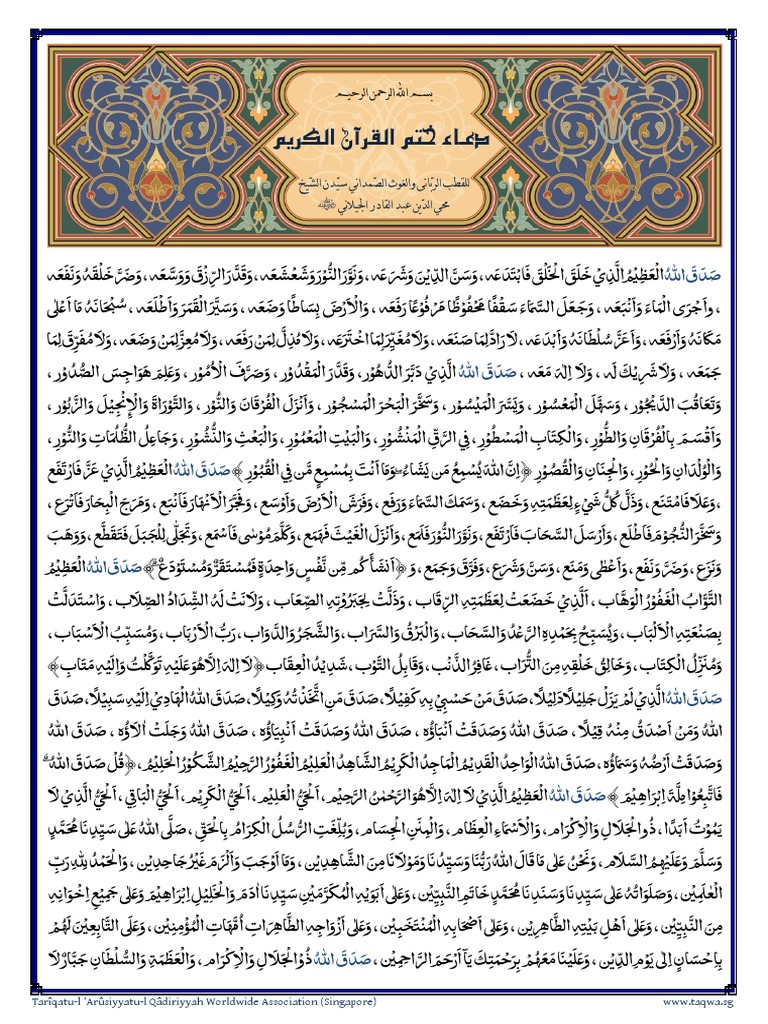 بسم الله الرحمن الرحيم
دعاء ختم القرآن الكريم
للقطب الرباني والغوث الصمداني سيدن الشيخ
محي الدين عبد القادر الجيلاني
صَدَقَ اللهُ الْعَظِيْمُ الَّذِيْ خَلَقَ الْخَلْقَ فَابْتَدَعَه، وَسَنَّ الدِّيْنَ وَشَرَعَه، وَنَوَّرَ النُّوْرَ وَشَعْشَعَه، وَقَدَّرَ الرِّزْقَ وَوَسَّعَه، وَضَرَّ خَلْقَهُ وَنَفَعَه
، وأَجْرَى الْمَاءَ وَأَنْبَعَه، وَجَعَلَ السَّمَاءَ سَقْفًا مَحْفُوْظًا مَرْفُوْعًا رَفَعَه، وَالْأَرْضَ بِسَاطًا وَضَعَه، وَسَيَّرَ الْقَمَرَ وَأَطْلَعَه، سُبْحَانَهُ مَا أَعْلَى
مَكَانَهُ وَأَرْفَعَه، وَأَعَزَّ سُلْطَانَهُ وَأَبْدَعَه، لَا رَادَّ لِمَا صَنَعَه، وَلَا مُغَيِّرَ لِمَا اخْتَرَعَه، وَلَا مُذِلَّ لِمَنْ رَفَعَه، وَلَا مُعِزَّ لِمَنْ وَضَعَه، وَلَا مُفَرِّقَ لِمَا
جَمَعَه، وَلَا شَرِيْكَ لَه، وَلَا إِلٰهَ مَعَه، صَدَقَ اللهُ الَّذِيْ دَبَّرَ الدُّهُوْر، وَقَدَّرَ الْمَقْدُوْر، وَصَرَّفَ الْأُمُوْر، وَعَلِمَ هَوَاجِسَ الصُّدُوْر،
وَتَعَاقُبَ الدَّيْجُوْر، وَسَهَّلَ الْمَعْسُوْر، وَيَسَّرَ الْمَيْسُوْر، وَسَخَّرَ الْبَحْرَ الْمَسْجُوْر، وَأَنْزَلَ الْفُرْقَانَ وَالنُّوْر، وَالتَّوْرَاةَ وَالْإِنْجِيْلَ وَالزَّبُوْر،
وَأَقْسَمَ بِالْفُرْقَانِ وَالطُّوْر، وَالْكِتَابِ الْمَسْطُوْر، فِي الرَّقِّ الْمَنْشُوْر، وَالْبَيْتِ الْمَعْمُوْر، وَالْبَعْثِ وَالنُّشُوْر، وَجَاعِلُ الظُّلُمَاتِ وَالنُّوْر،
وَالْوِلْدَانِ وَالْحُوْر، وَالْجِنَانِ وَالْقُصُوْر ﴿إِنَّ اللهَ يُسْمِعُ مَن يَشَاءُ ۖ وَمَا أَنْتَ بِمُسْمِعٍ مَّن فِي الْقُبُوْر﴾ صَدَقَ اللهُ الْعَظِيْمُ الَّذِيْ عَزَّ فَارْتَفَع
، وَعَلَا فَامْتَنَع، وَذَلَّ كُلُّ شَيْءٍ لِعَظَمَتِهِ وَخَضَع، وَسَمَكَ السَّمَاءَ وَرَفَع، وَفَرَشَ الْأَرْضَ وَأَوْسَع، وَفَجَّرَ الْأَنْهَارَ فَأَنْبَع، وَمَرَجَ الْبِحَارَ فَأَتْرَع،
وَسَخَّرَ النُّجُوْمَ فَأَطْلَع، وَأَرْسَلَ السَّحَابَ فَارْتَفَع، وَنَوَّرَ النُّوْرَ فَلَمَع، وَأَنْزَلَ الْغَيْثَ فَهَمَع، وَكَلَّمَ مُوْسَى فَأَسْمَع، وَتَجَلَّى لِلْجَبَلِ فَتَقَطَّع، وَوَهَبَ
وَنَزَع، وَضَرَّ وَنَفَع، وَأَعْطَى وَمَنَع، وَسَنَّ وَشَرَع، وَفَرَّقَ وَجَمَع، وَ ﴿أَنشَأَكُم مِّن نَّفْسٍ وَاحِدَةٍ فَمُسْتَقَرٌّ وَمُسْتَوْدَعٌ ۗ﴾ صَدَقَ اللهُ الْعَظِيْمُ
التَّوَّابُ الْغَفُوْرُ الْوَهَّاب، الَّذِيْ خَضَعَتْ لِعَظَمَتِهِ الرِّقَاب، وَذَلَّتْ لِجَبَرُوْتِهِ الصِّعَاب، وَلَانَتْ لَهُ الشِّدَادُ الصِّلَاب، وَاسْتَدَلَّتْ
بِصَنْعَتِهِ الْأَلْبَاب، وَيُسَبِّحُ بِحَمْدِهِ الرَّعْدُ وَالسَّحَاب، وَالْبَرْقُ وَالسَّرَاب، وَالشَّجَرُ وَالدَّوَاب، رَبُّ الْأَرْبَاب، وَمُسَبِّبُ الْأَسْبَاب،
وَمُنَزِّلُ الْكِتَاب، وَخَالِقُ خَلْقِهِ مِنَ التُّرَاب، غَافِرُ الذَّنْب، وَقَابِلُ التَّوْب، شَدِيْدُ الْعِقَاب ﴿لَا إِلٰهَ إِلَّا هُوَ عَلَيْهِ تَوَكَّلْتُ وَإِلَيْهِ مَتَابِ﴾
صَدَقَ اللهُ الَّذِيْ لَمْ يَزَلْ جَلِيْلًا دَلِيْلًا، صَدَقَ مَنْ حَسْبِيْ بِهِ كَفِيْلًا، صَدَقَ مَنِ اتَّخَذْتُهُ وَكِيْلًا، صَدَقَ اللهُ الْهَادِيْ إِلَيْهِ سَبِيْلًا، صَدَقَ
اللهُ وَمَنْ أَصْدَقُ مِنْهُ قِيْلًا، صَدَقَ اللهُ وَصَدَقَتْ أَنْبَاؤُه، صَدَقَ اللهُ وَصَدَقَتْ أَنْبِيَاؤُه، صَدَقَ اللهُ وَجَلَّتْ آلَاؤُه، صَدَقَ اللهُ
وَصَدَقَتْ أَرْضُهُ وَسَمَاؤُه، صَدَقَ اللهُ الْوَاحِدُ الْقَدِيْمُ الْمَاجِدُ الْكَرِيْمُ الشَّاهِدُ الْعَلِيْمُ الْغَفُوْرُ الرَّحِيْمُ الشَّكُوْرُ الْحَلِيْمُ، ﴿قُلْ صَدَقَ اللهُ ۗ
فَاتَّبِعُوْا مِلَّةَ إِبْرَاهِيْمَ﴾ صَدَقَ اللهُ الْعَظِيْمُ الَّذِيْ لَا إِلٰهَ إِلَّا هُوَ الرَّحْمٰنُ الرَّحِيْم، اَلْحَيُّ الْعَلِيْم، اَلْحَيُّ الْكَرِيْم، اَلْحَيُّ الْبَاقِي، اَلْحَيُّ الَّذِيْ لَا
يَمُوْتُ أَبَدًا، ذُو الْجَلَالِ وَالْإِكْرَام، وَالْأَسْمَاءِ الْعِظَام، وَالْمِنَنِ الْجِسَام، وَبُلِّغَتِ الرُّسُلُ الْكِرَامُ بِالْحَقّ، صَلَّى اللهُ عَلَى سَيِّدِنَا مُحَمَّدٍ
وَسَلَّمَ وَعَلَيْهِمُ السَّلَام، وَنَحْنُ عَلَى مَا قَالَ اللهُ رَبُّنَا وَسَيِّدُنَا وَمَوْلَانَا مِنَ الشَّاهِدِيْن، وَمَا أَوْجَبَ وَأَلْزَمَ غَيْرُ جَاحِدِيْن، وَالْحَمْدُ لِلّٰهِ رَبِّ
الْعٰلَمِيْن، وَصَلَوَاتُهُ عَلَى سَيِّدِنَا وَسَنَدِنَا مُحَمَّدٍ خَاتَمِ النَّبِيِّيْن، وَعَلَى أَبَوَيْهِ الْمُكَرَّمَيْنِ سَيِّدِنَا اٰدَمَ وَالْخَلِيْلِ إِبْرَاهِيْمَ وَعَلَى جَمِيْعِ إِخْوَانِهِ
مِنَ النَّبِيِّيْن، وَعَلَى أَهْلِ بَيْتِهِ الطَّاهِرِيْن، وَعَلَى أَصْحَابِهِ الْمُنْتَخَبِيْن، وَعَلَى أَزْوَاجِهِ الطَّاهِرَاتِ أُمَّهَاتِ الْمُؤْمِنِيْن، وَعَلَى التَّابِعِيْنَ لَهُمْ
بِإِحْسَانٍ إِلَى يَوْمِ الدِّيْن، وَعَلَيْنَا مَعَهُمْ بِرَحْمَتِكَ يَآ أَرْحَمَ الرَّاحِمِيْن، صَدَقَ اللهُ ذُو الْجَلَالِ وَالْإِكْرَام، وَالْعَظَمَةِ وَالسُّلْطَانِ جَبَّارٌ لَا
Tarîqatu-l 'Arûsiyyatu-l Qâdiriyyah Worldwide Association (Singapore)
www.taqwa.sg